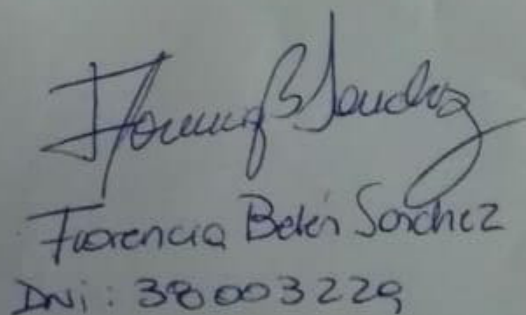 Florencia B Sanchez
Florencia Belén Sanchez
DNi: 38003229